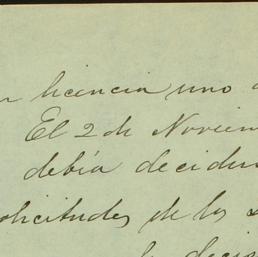 licencia uno
El 2 de Noviem
debía decidir
olicitudes de los